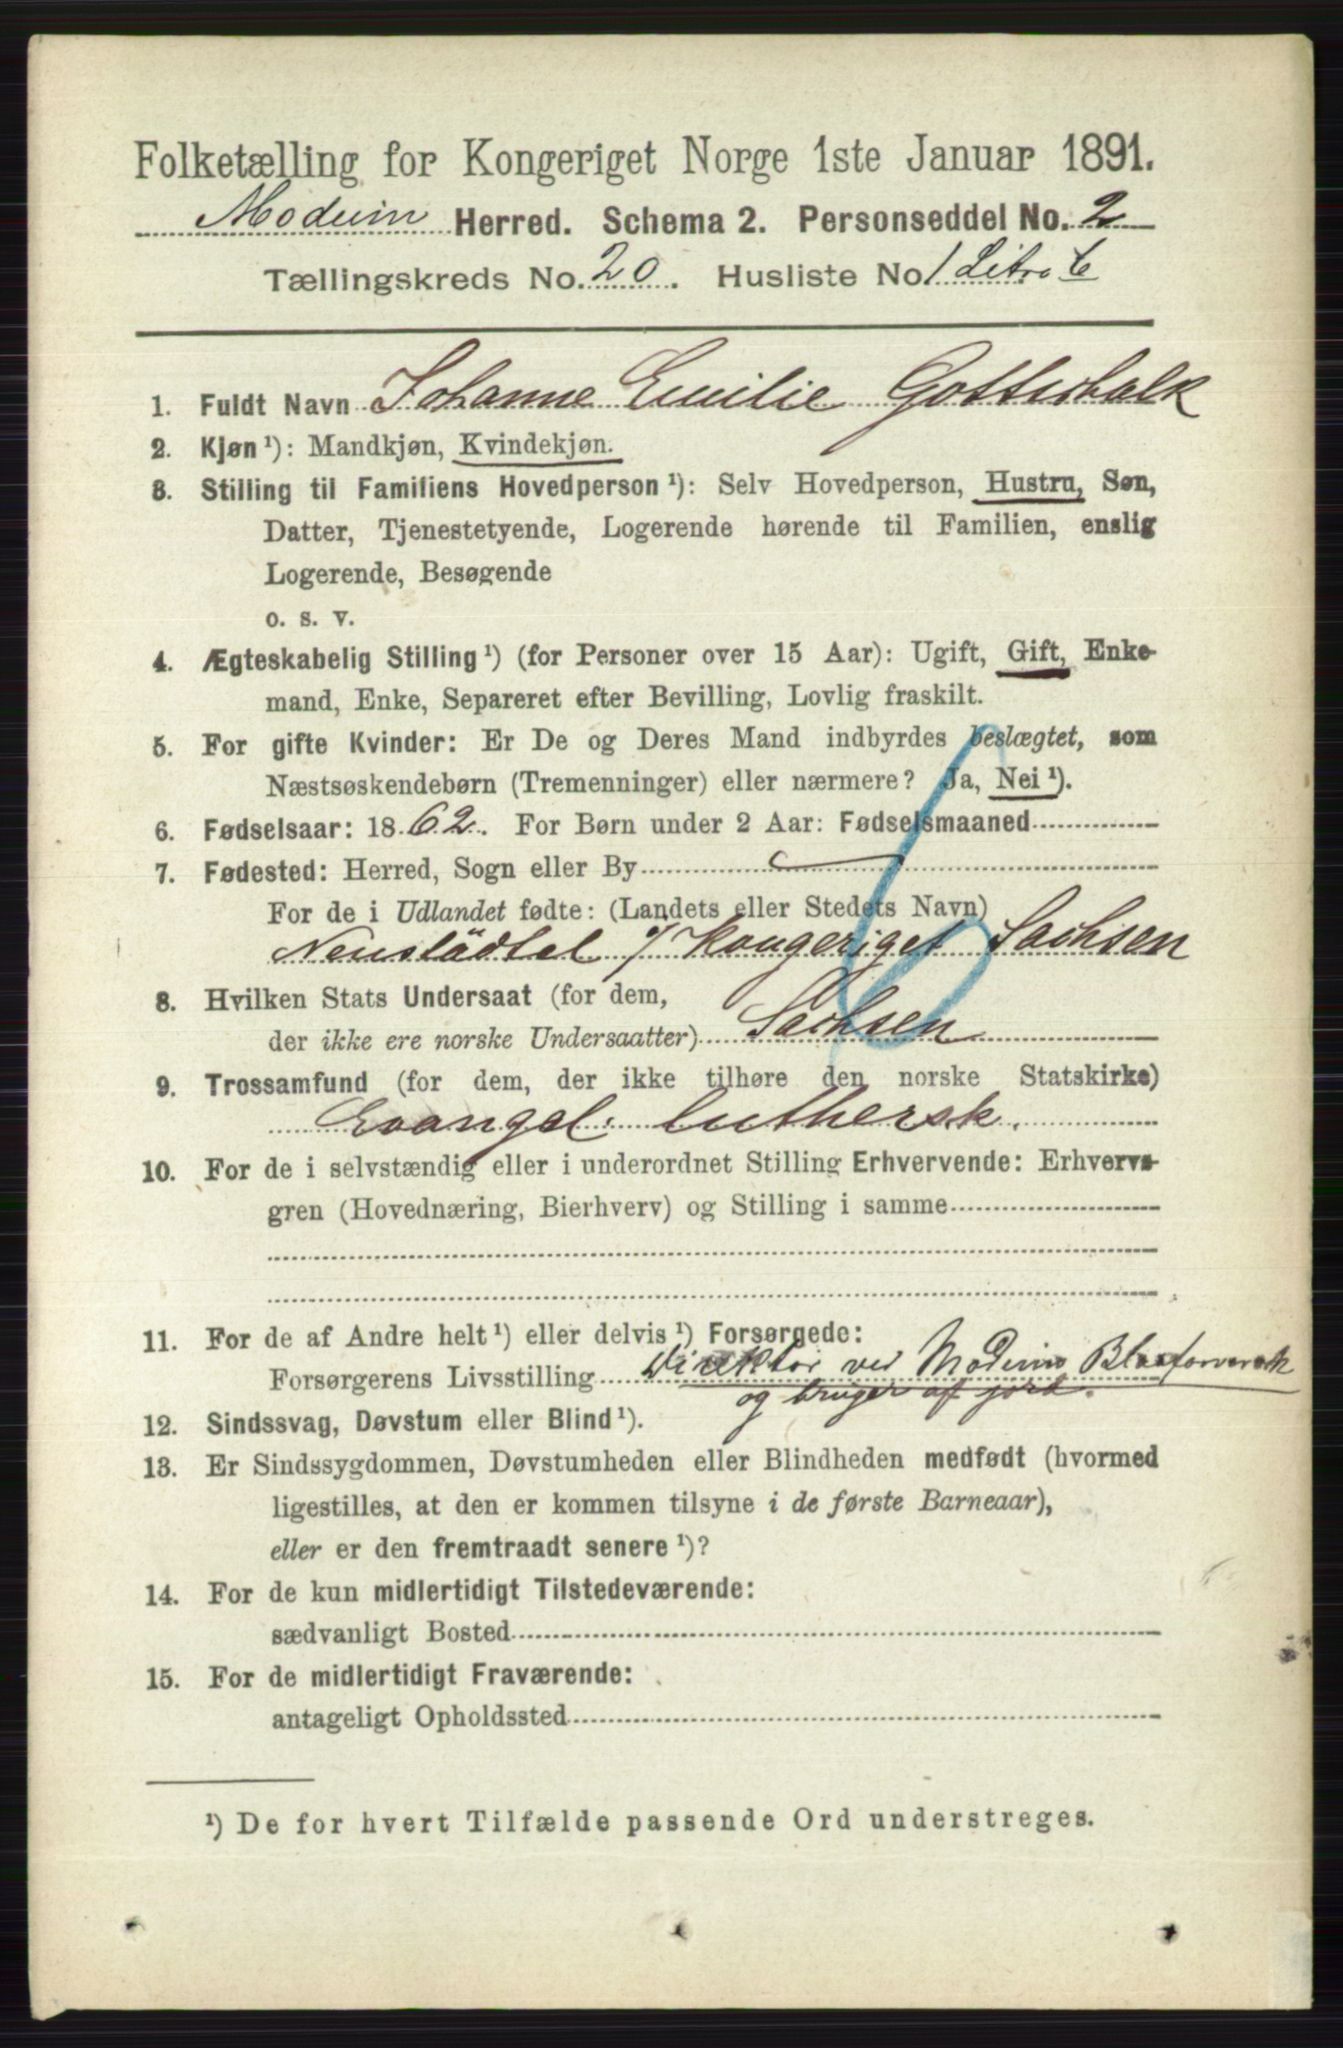 Folketælling for Kongeriget Norge 1ste Januar 1891.
Modum Herred. Schema 2. Personseddel No. 2
Tællingskreds No. 20. Husliste No. 1 Litra C
1. Fuldt Navn Johanne Emilie Gottschalk
2. Kjøn ¹): Mandkjøn, Kvindekjøn.
3. Stilling til Familiens Hovedperson ¹): Selv Hovedperson, Hustru, Søn,
Datter, Tjenestetyende, Logerende hørende til Familien, enslig
Logerende, Besøgende
o. s. v.
4. Ægteskabelig Stilling ¹) (for Personer over 15 Aar): Ugift, Gift, Enke-
mand, Enke, Separeret efter Bevilling, Lovlig fraskilt.
5. For gifte Kvinder: Er De og Deres Mand indbyrdes beslægtet, som
Næstsøskendebørn (Tremenninger) eller nærmere? Ja, Nei ¹).
6. Fødselsaar: 1862. For Børn under 2 Aar: Fødselsmaaned
7. Fødested: Herred, Sogn eller By
For de i Udlandet fødte: (Landets eller Stedets Navn)
Neustädtel / Kongeriget Sachsen
8. Hvilken Stats Undersaat (for dem,
der ikke ere norske Undersaatter) Sachsen
9. Trossamfund (for dem, der ikke tilhøre den norske Statskirke)
Evangel. luthersk.
10. For de i selvstændig eller i underordnet Stilling Erhvervende: Erhvervs-
gren (Hovednæring, Bierhverv) og Stilling i samme
11. For de af Andre helt ¹) eller delvis ¹) Forsørgede:
Forsørgerens Livsstilling Direktør ved Modums Blaafarveværk
og bruger af jord.
12. Sindssvag, Døvstum eller Blind ¹).
13. Er Sindssygdommen, Døvstumheden eller Blindheden medfødt (hvormed
ligestilles, at den er kommen tilsyne i de første Barneaar),
eller er den fremtraadt senere ¹)?
14. For de kun midlertidigt Tilstedeværende:
sædvanligt Bosted
15. For de midlertidigt Fraværende:
antageligt Opholdssted
¹) De for hvert Tilfælde passende Ord understreges.